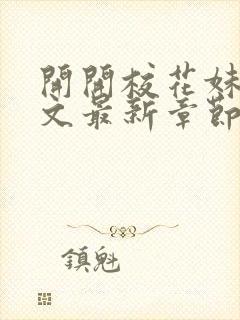 開閞校花妹
文最新章節
鎮魁